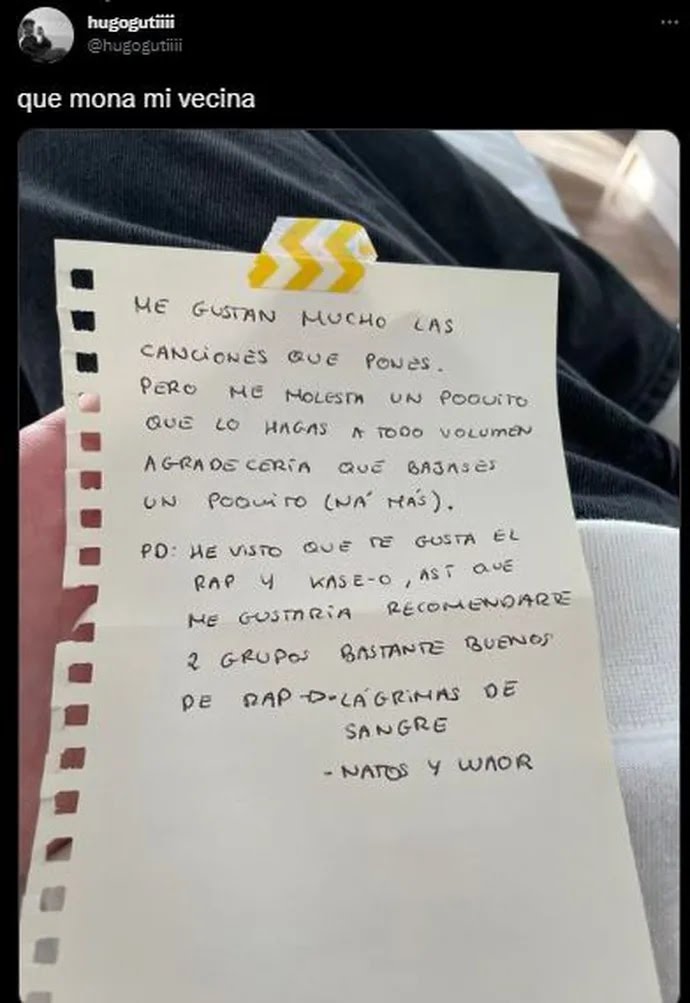 hugogutiiii
@hugogutiiii
que mona mi vecina
ME GUSTAN MUCHO LAS
CANCIONES QUE PONES.
PERO ME MOLESTA UN POQUITO
QUE LO HAGAS A TODO VOLUMEN
AGRADECERÍA QUE BAJASES
UN POQUITO (NA' MÁS).
PD: HE VISTO QUE TE GUSTA EL
RAP Y KASE-O, ASÍ QUE
ME GUSTARÍA RECOMENDARTE
2 GRUPOS BASTANTE BUENOS
DE RAP -D-LÁGRIMAS DE
SANGRE
-NATOS Y WAOR